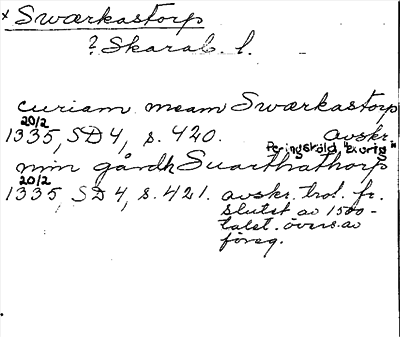 × Swærkastorp
? Skarab. l.
curiam meam Swærkastorp
20/2
1335, SD 4, s. 420. avskr.
Peringskiöld, "Ex orig"
min gårdh Suarthathorp
20/2
1335, SD 4, s. 421. avskr. trol. fr.
slutet av 1500-
talet. övers. av
föreg.